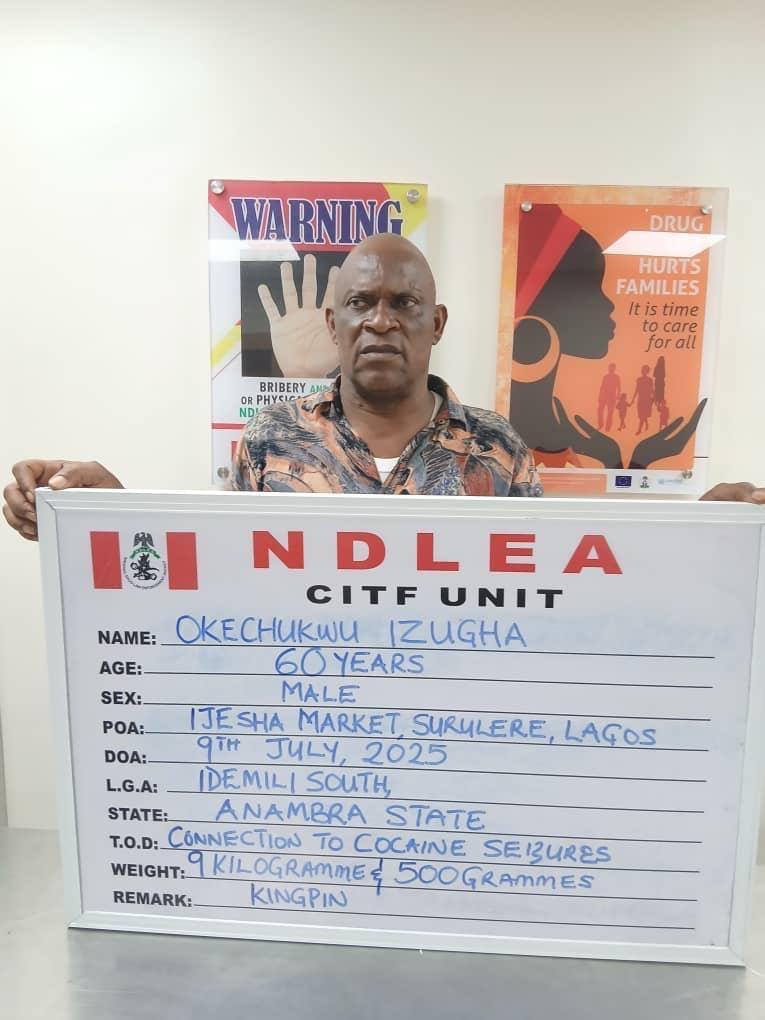 WARNING
BRIBERY AND
OR PHYSICA
NDL
DRUG
HURTS
FAMILIES
It is time
to care
for all
NDLEA
CITF UNIT
NAME: OKECHUKWU IZUGHA
AGE: 60 YEARS
SEX: MALE
POA: IJESHA MARKET, SURULERE, LAGOS
DOA: 9TH JULY, 2025
L.G.A: IDEMILI SOUTH,
STATE: ANAMBRA STATE
T.O.D: CONNECTION TO COCAINE SEIZURES
WEIGHT: 9 KILOGRAMME & 500 GRAMMES
REMARK: KINGPIN